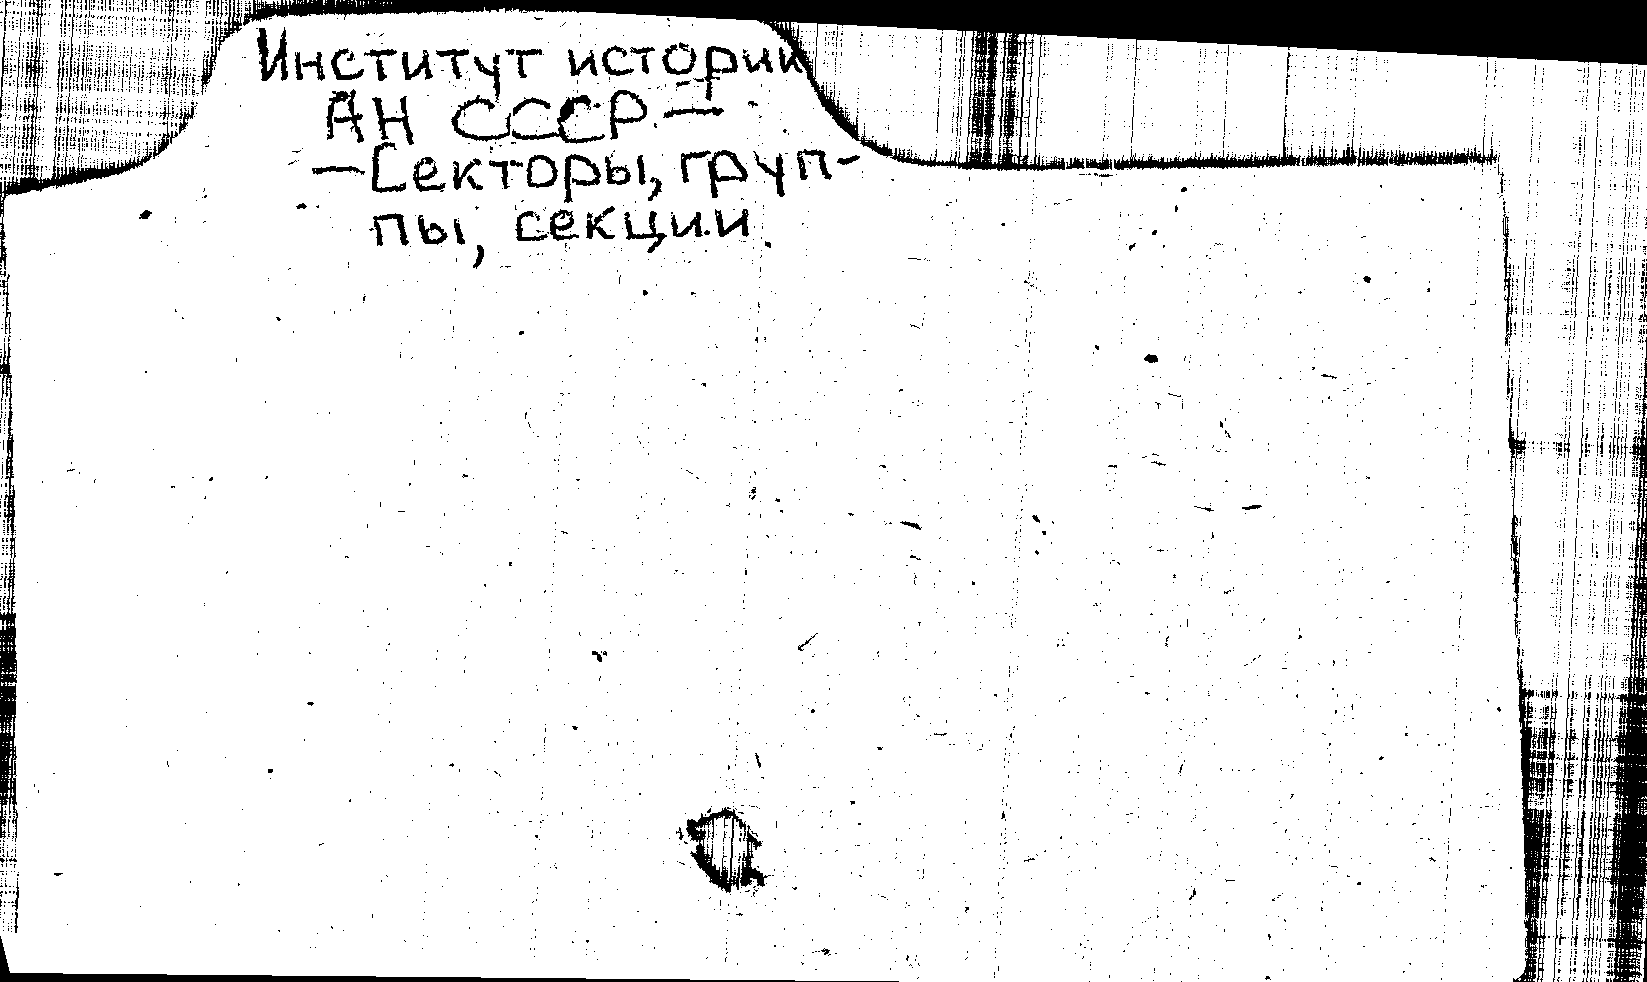 Институт истории
АН СССР —
— Секторы, груп-
пы, секции